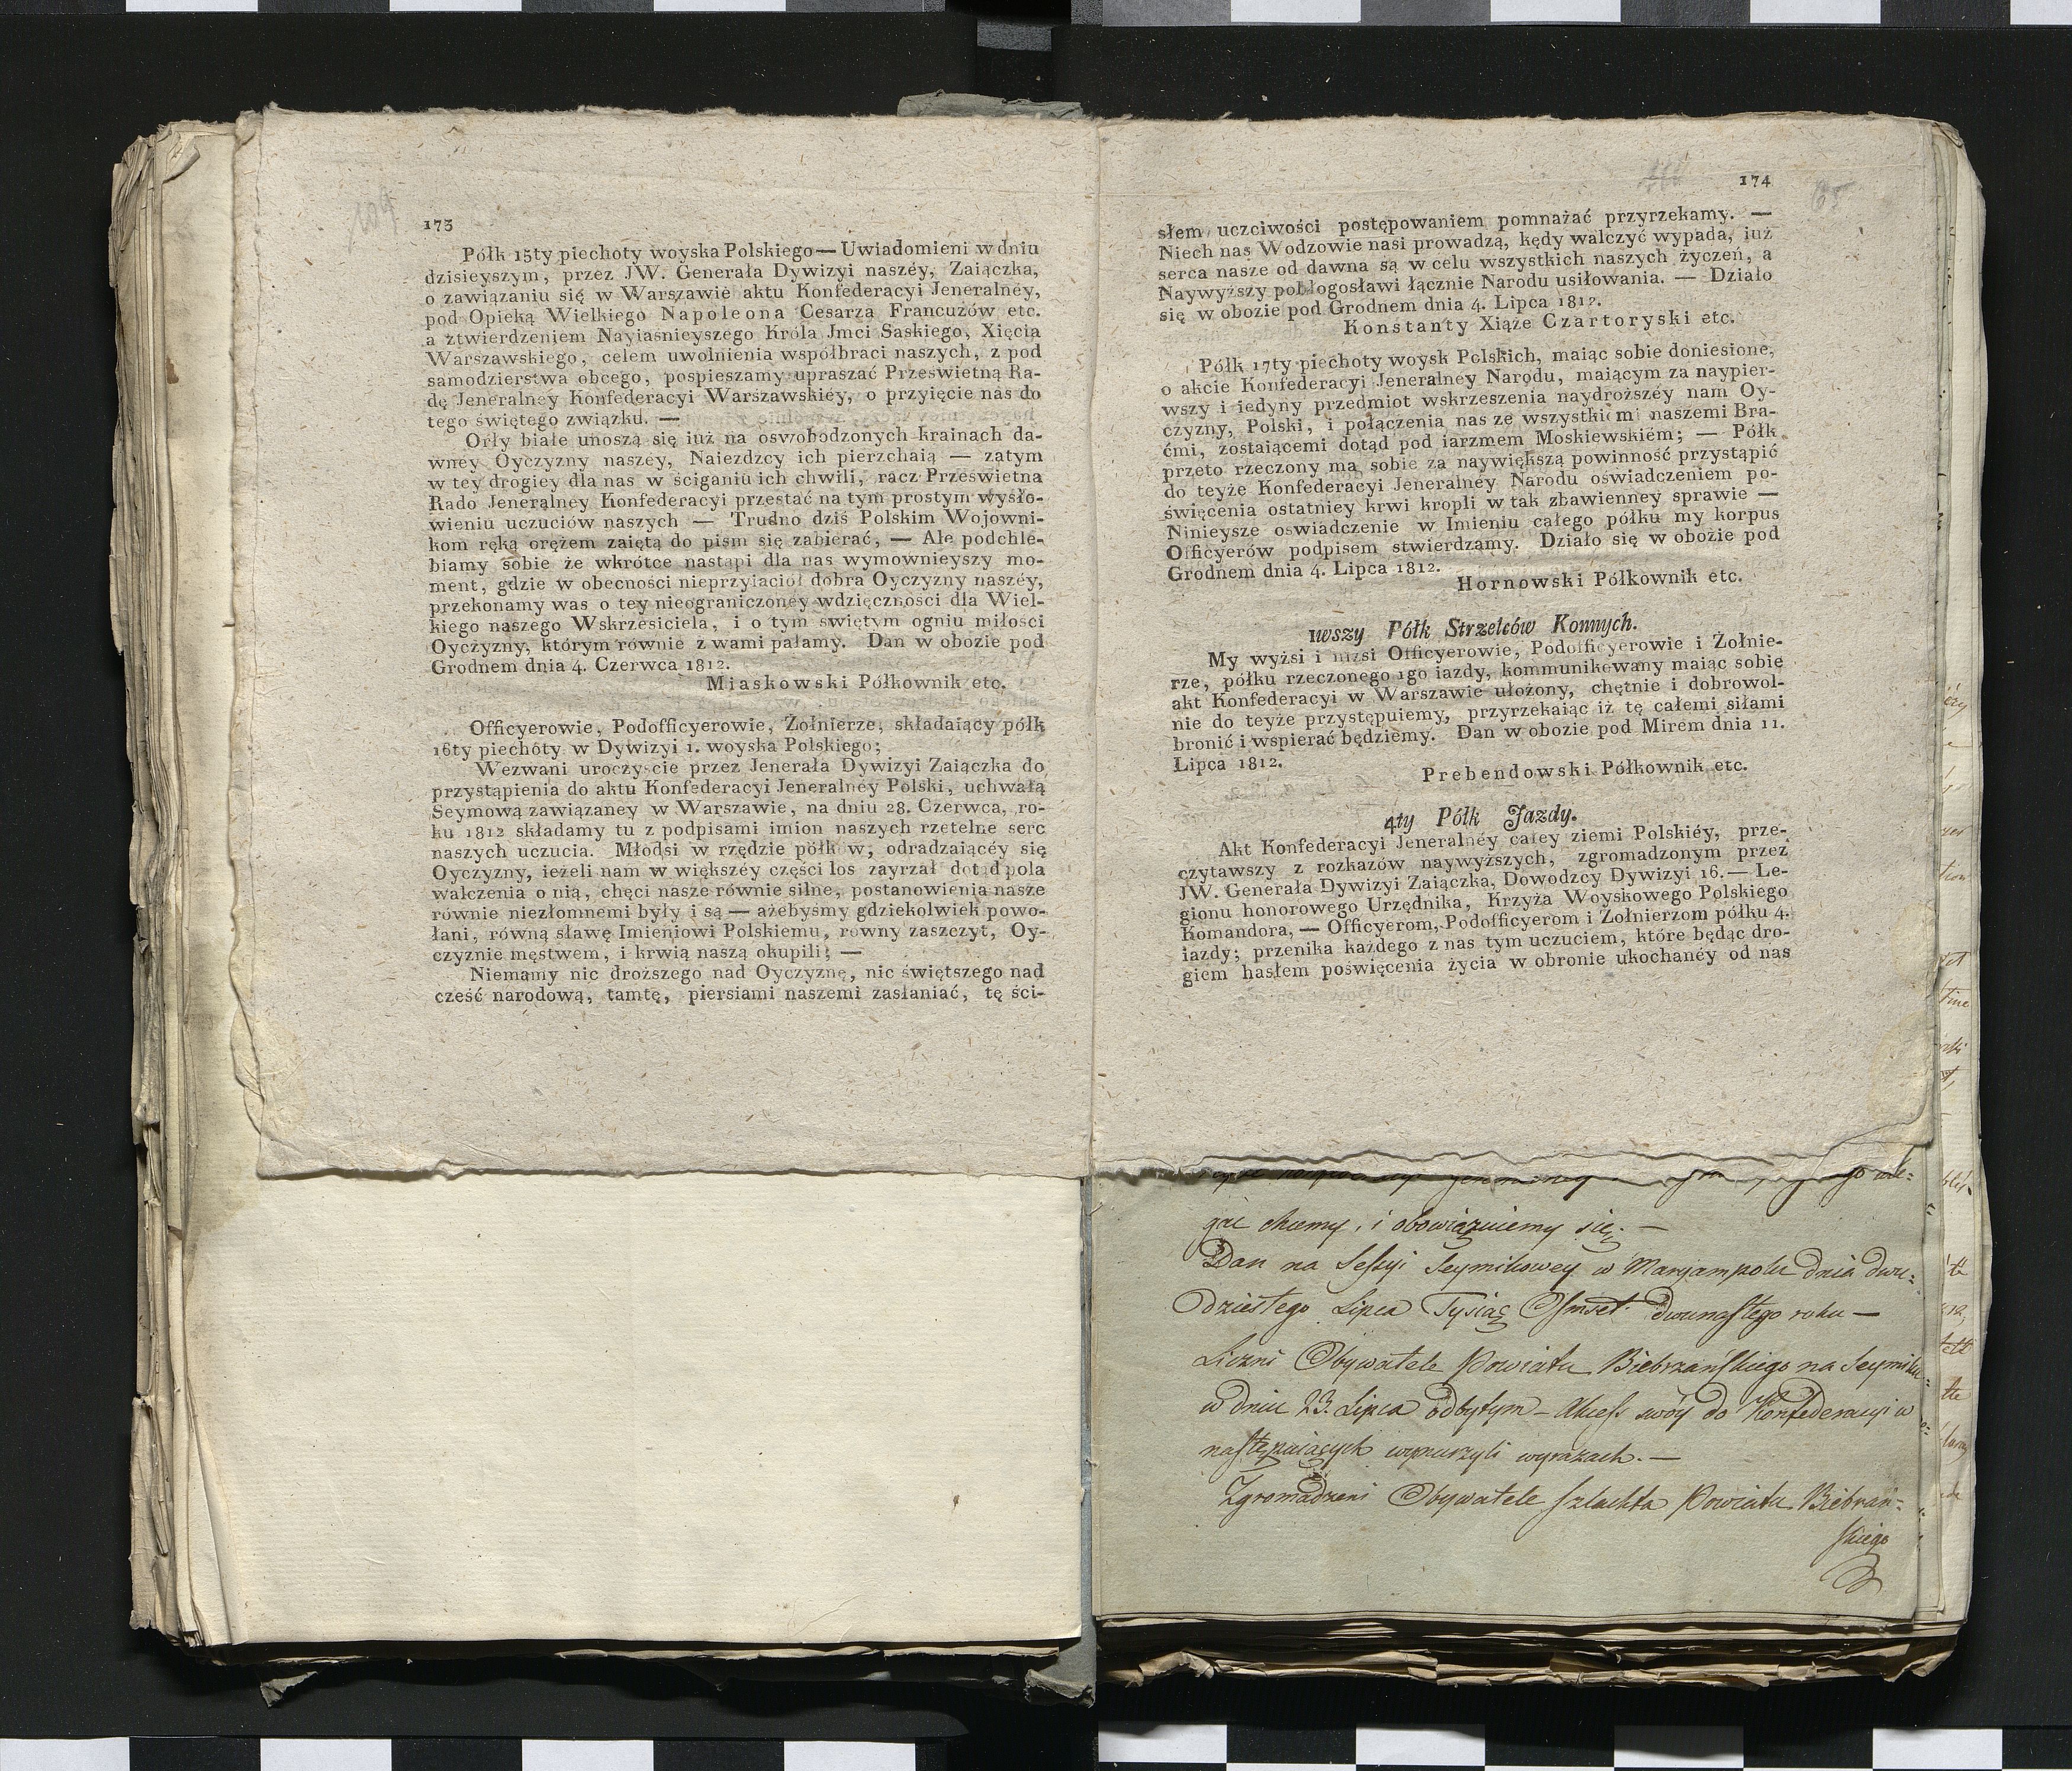 173
Półk 15ty piechoty woyska Polskiego — Uwiadomieni w dniu
dzisieyszym, przez JW. Generała Dywizyi naszéy, Zaiączka,
o zawiązaniu się w Warszawie aktu Konfederacyi Jeneralnéy,
pod Opieką Wielkiego Napoleona Cesarza Francuzów etc.
a ztwierdzeniem Nayiaśnieyszego Króla Jmci Saskiego, Xięcia
Warszawskiego, celem uwolnienia współbraci naszych, z pod
samodzierstwa obcego, pospieszamy upraszać Prześwietną Ra-
dę Jeneralnéy Konfederacyi Warszawskiéy, o przyięcie nas do
tego świętego związku. —
Orły białe unoszą się iuż na oswobodzonych krainach da-
wnéy Oyczyzny naszéy, Naiezdzcy ich pierzchaią — zatym
w tey drogiey dla nas w ściganiu ich chwili, racz Prześwietna
Rado Jeneralnéy Konfederacyi przestać na tym prostym wysło-
wieniu uczuciów naszych — Trudno dziś Polskim Wojowni-
kom ręką orężem zaiętą do pism się zabierać, — Ale podchle-
biamy sobie że wkrótce nastąpi dla nas wymownieyszy mo-
ment, gdzie w obecności nieprzyiaciół dobra Oyczyzny naszéy,
przekonamy was o tey nieograniczonéy wdzięczności dla Wiel-
kiego naszego Wskrzesiciela, i o tym świętym ogniu miłości
Oyczyzny, którym równie z wami pałamy. Dan w obozie pod
Grodnem dnia 4. Czerwca 1812.
Miaskowski Półkownik etc.
Officyerowie, Podofficyerowie, Żołnierze, składaiący półk
16ty piechoty w Dywizyi 1. woyska Polskiego;
Wezwani uroczyście przez Jenerała Dywizyi Zaiączka do
przystąpienia do aktu Konfederacyi Jeneralnéy Polski, uchwałą
Seymową zawiązaney w Warszawie, na dniu 28. Czerwca, ro-
ku 1812 składamy tu z podpisami imion naszych rzetelne serc
naszych uczucia. Młodsi w rzędzie półków, odradzaiącéy się
Oyczyzny, ieżeli nam w większéy części los zayrzał dotąd pola
walczenia o nią, chęci nasze równie silne, postanowienia nasze
równie niezłomnemi były i są — ażebyśmy gdziekolwiek powo-
łani, równą sławę Imieniowi Polskiemu, równy zaszczyt, Oy-
czyznie męstwem, i krwią naszą okupili; —
Niemamy nic droższego nad Oyczyznę, nic świętszego nad
cześć narodową, tamtę, piersiami naszemi zasłaniać, tę ści-
174
słem uczciwości postępowaniem pomnażać przyrzekamy. —
Niech nas Wodzowie nasi prowadzą, kędy walczyć wypada, iuż
serca nasze od dawna są w celu wszystkich naszych życzeń, a
Naywyższy pobłogosławi łącznie Narodu usiłowania. — Działo
się w obozie pod Grodnem dnia 4. Lipca 1812.
Konstanty Xiąże Czartoryski etc.
Półk 17ty piechoty woysk Polskich, maiąc sobie doniesione,
o akcie Konfederacyi Jeneralnéy Narodu, maiącym za naypier-
wszy i iedyny przedmiot wskrzeszenia naydroższéy nam Oy-
czyzny, Polski, i połączenia nas ze wszystkiemi naszemi Bra-
ćmi, zostaiącemi dotąd pod iarzmem Moskiewskiém; — Półk
przeto rzeczony ma sobie za naywiększą powinność przystąpić
do teyże Konfederacyi Jeneralnéy Narodu oświadczeniem po-
święcenia ostatniey krwi kropli w tak zbawienney sprawie —
Ninieysze oswiadczenie w Imieniu całego półku my korpus
Officyerów podpisem stwierdzamy. Działo się w obozie pod
Grodnem dnia 4. Lipca 1812.
Hornowski Półkownik etc.
1wszy Półk Strzelców Konnych.
My wyżsi i niżsi Officyerowie, Podofficyerowie i Żołnie-
rze, półku rzeczonego 1go iazdy, kommunikowany maiąc sobie
akt Konfederacyi w Warszawie ułożony, chętnie i dobrowol-
nie do teyże przystępuiemy, przyrzekaiąc iż tę całemi siłami
bronić i wspierać będziemy. Dan w obozie pod Mirem dnia 11.
Lipca 1812.
Prebendowski Półkownik etc.
4ty Półk Jazdy.
Akt Konfederacyi Jeneralnéy całey ziemi Polskiéy, prze-
czytawszy z rozkazów naywyższych, zgromadzonym przez
JW. Generała Dywizyi Zaiączka, Dowodzcy Dywizyi 16. — Le-
gionu honorowego Urzędnika, Krzyża Woyskowego Polskiego
Komandora, — Officyerom, Podofficyerom i Żołnierzom półku 4.
iazdy; przenika każdego z nas tym uczuciem, które będąc dro-
giem hasłem poświęcenia życia w obronie ukochanéy od nas
gać chcemy, i obowiązuiemy się. —
Dan na Sessyi Seymikowey w Maryampolu dnia dwu=
dziestego Lipca Tysiąc Osmset dwunastego roku —
Liczni Obywatele Powiatu Biebrzańskiego na Seymiku
w dniu 23. Lipca odbytym — Akcess swóy do Konfederacyi w
następuiących wynurzyli wyrazach. —
Zgromadzeni Obywatele szlachta Powiatu Biebrzań=
skiego